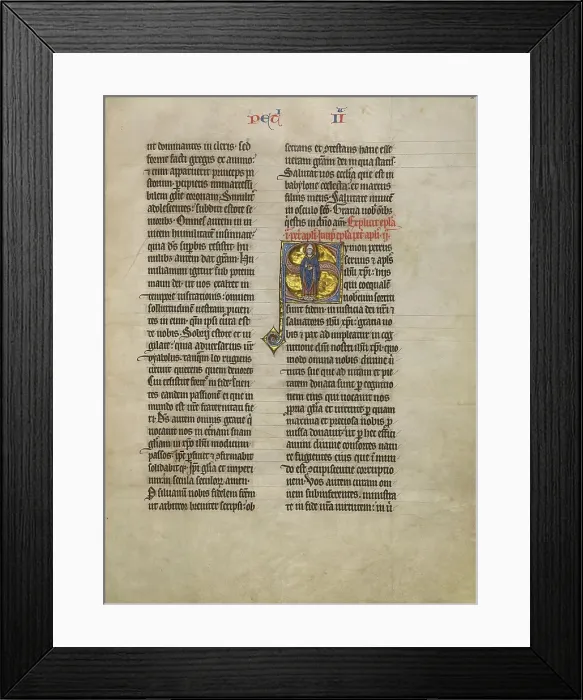 ped II
nt dominantes in cleris· sed
forme facti gregis ex animo·
⁊ cum apparuerit princeps pa
storum· percipietis immarcessi
bilem glorie coronam· Similiter
adolescentes· subditi estote se
nioribus· Omnes autem in in
uicem humilitatem insinuate·
quia deus superbis resistit· hu
milibus autem dat gratiam· Hu
miliamini igitur sub potenti
manu dei· ut uos exaltet in
tempore uisitationis· omnem
sollicitudinem uestram proicien
tes in eum· quoniam ipsi cura est
de uobis· Sobrij estote et ui
gilate· quia aduersarius uester
dyabolus· tanquam leo rugiens
circuit querens quem deuoret·
Cui resistite fortes in fide· scien
tes eandem passionem ei que in
mundo est uestre fraternitati fie
ri· Deus autem omnis gratie qui
uocauit nos in eternam suam
gloriam in xpo ihu modicum
passos· ipse perficiet ⁊ confirmabit
solidabitque· Ipsi gloria et imperi
um in secula seculorum· amen·
Per siluanum uobis fidelem fratrem
ut arbitror breuiter scripsi· ob
secrans et contestans hanc esse
ueram gratiam dei in qua statis·
Salutat uos ecclesia que est in
babylone coelecta· et marcus
filius meus· Salutate inuicem
in osculo sancto· Gratia uobis omnibus
qui estis in christo amen· Explicit epistola
i· petri apostoli· Incipit epistola petri apostoli· ij·
Symon petrus
seruus ⁊ apostolus
ihu xpi· hijs
qui coequalem
nobiscum sortiti
sunt fidem· in iusticia dei nostri ⁊
saluatoris ihu xpi· gratia uo
bis ⁊ pax adimpleatur in cog
nitione domini nostri ihu xpi· quo
modo omnia nobis diuine ui
rtutis sue que ad uitam et pie
tatem donata sunt per cognitio
nem eius qui uocauit nos
propria gloria et uirtute per quam
maxima et preciosa nobis pro
missa donauit· ut per hec effici
amini diuine consortes natu
re fugientes eius que in mun
do est concupiscentie corruptio
nem· Vos autem curam om
nem subinferentes· ministra
te in fide uestra uirtutem· in ui